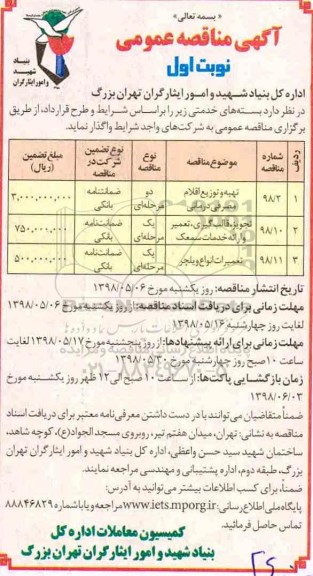 « بسمه تعالی»
آگهی مناقصه عمومی
نوبت اول
بنیاد
شهید
و امور ایثارگران
اداره کل بنیاد شهید و امور ایثارگران تهران بزرگ
در نظر دارد بسته‌های خدمتی زیر را براساس شرایط و طرح قرارداد، از طریق
برگزاری مناقصه عمومی به شرکت‌های واجد شرایط واگذار نماید.
ردیف شماره مناقصه موضوع مناقصه نوع مناقصه نوع تضمین شرکت در مناقصه مبلغ تضمین (ریال)
۱ ۹۸/۲ تهیه و توزیع اقلام مصرفی درمانی دو مرحله‌ای ضمانتنامه بانکی ۳,۰۰۰,۰۰۰,۰۰۰
۲ ۹۸/۱۰ تجویز، قالب‌گیری، تعمیر و ارائه خدمات سمعک یک مرحله‌ای ضمانت‌نامه بانکی ۷۵۰,۰۰۰,۰۰۰
۳ ۹۸/۱۱ تعمیرات انواع ویلچر یک مرحله‌ای ضمانت‌نامه بانکی ۵۰۰,۰۰۰,۰۰۰
تاریخ انتشار مناقصه: روز یکشنبه مورخ ۱۳۹۸/۰۵/۰۶
مهلت زمانی برای دریافت اسناد مناقصه: از روز یکشنبه مورخ ۱۳۹۸/۰۵/۰۶
لغایت روز چهارشنبه ۱۳۹۸/۰۵/۱۶
مهلت زمانی برای ارائه پیشنهادها: از روز پنجشنبه مورخ ۱۳۹۸/۰۵/۱۷ لغایت
ساعت ۱۰ صبح روز چهارشنبه مورخ ۱۳۹۸/۰۵/۳۰
زمان بازگشایی پاکت‌ها: از ساعت ۱۰ صبح الی ۱۲ ظهر روز یکشنبه مورخ
۱۳۹۸/۰۶/۰۳
ضمناً متقاضیان می‌توانند با در دست داشتن معرفی‌نامه معتبر برای دریافت اسناد
مناقصه به نشانی: تهران، میدان هفتم تیر، روبروی مسجد الجواد(ع)، کوچه شاهد،
ساختمان شهید سید حسن واعظی، اداره کل بنیاد شهید و امور ایثارگران تهران
بزرگ، طبقه دوم، اداره پشتیبانی و مهندسی مراجعه نمایند.
ضمناً، برای کسب اطلاعات بیشتر می‌توانید به آدرس:
پایگاه ملی اطلاع‌رسانی: www.iets.mporg.ir مراجعه و یا با شماره ۸۸۸۴۶۸۲۹
تماس حاصل فرمائید.
کمیسیون معاملات اداره کل
بنیاد شهید و امور ایثارگران تهران بزرگ